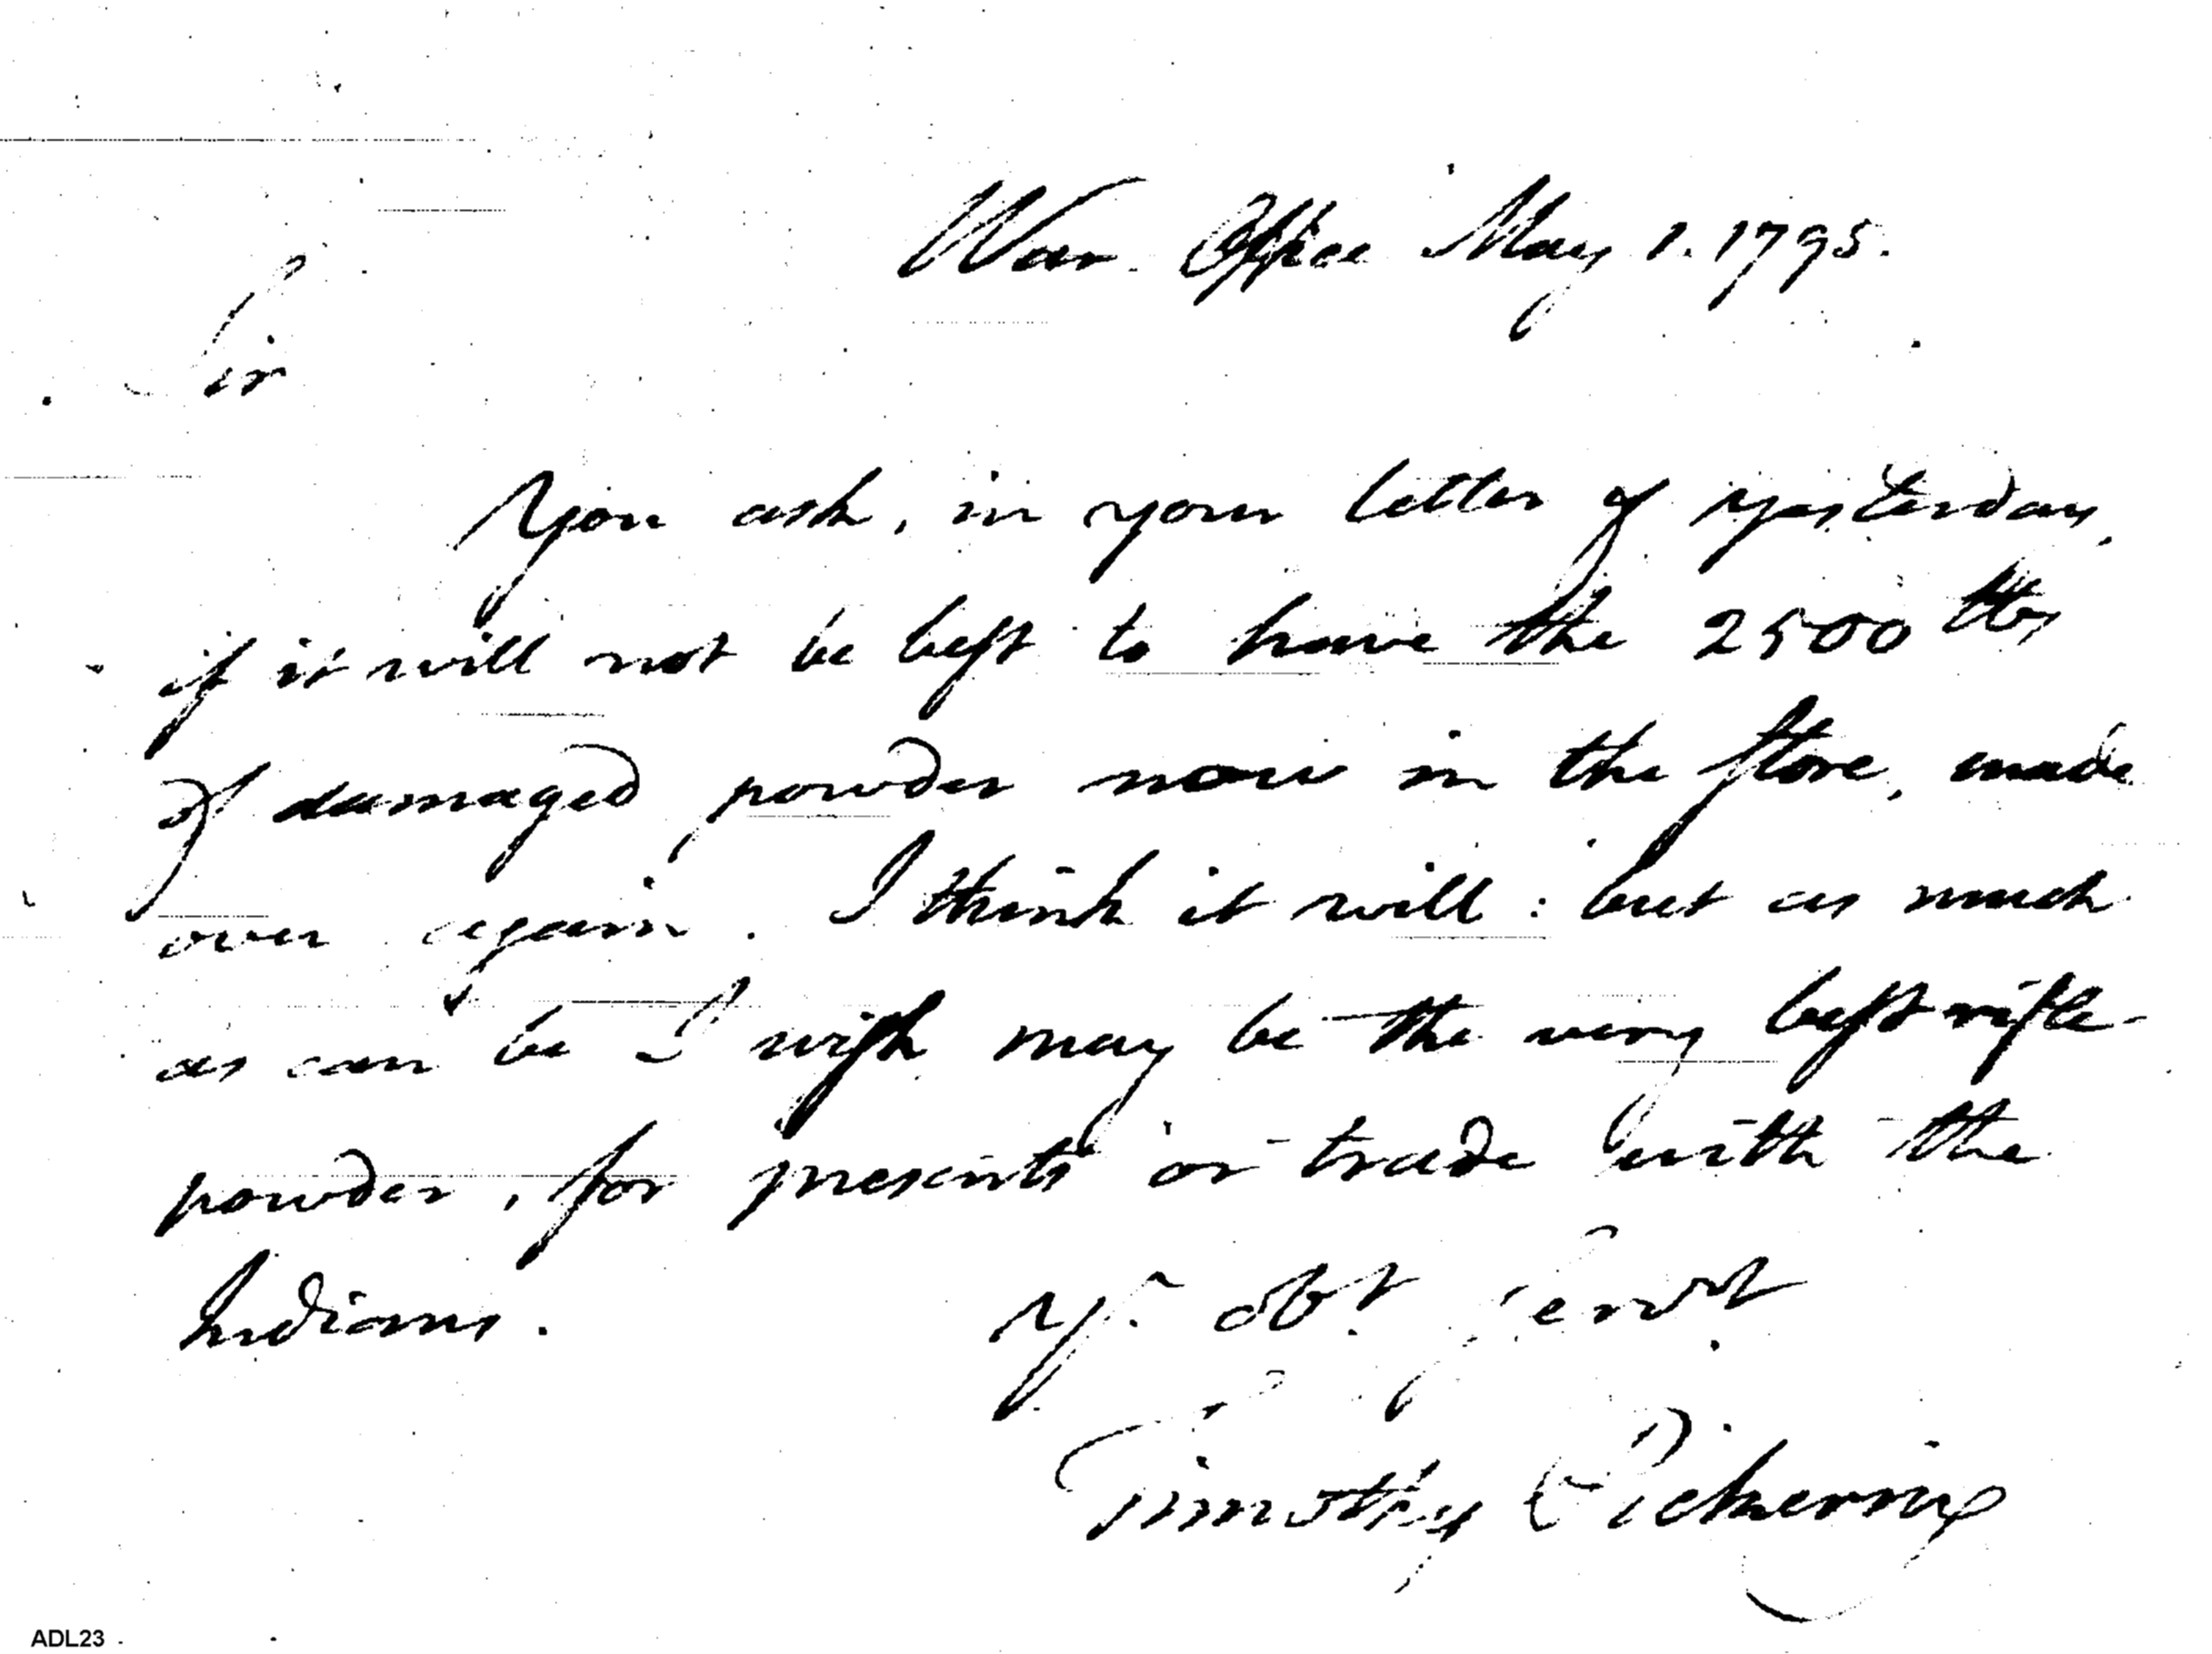 War Office May 1. 1795.
Sir
You ask, in your letter of yesterday,
if it will not be best to have the 2500 lbs
of damaged powder now in the store, made
over again. I think it will: but as much
as can be I wish may be the very best rifle-
powder, for presents or trade with the
Indians.
Yr. obt. servt.
Timothy Pickering
ADL23